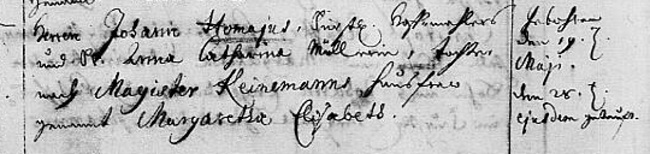 Herren Johann Homajus, Fürstl. Hoffmahlers
und Fr. Anna Catharina Müllerin, Tochter
nach Magister Keinemanns Hausfrau
genannt Margaretha Elisabeth.
gebohren
den 19. 
Maji.
den 28. 
ejusdem getauft.